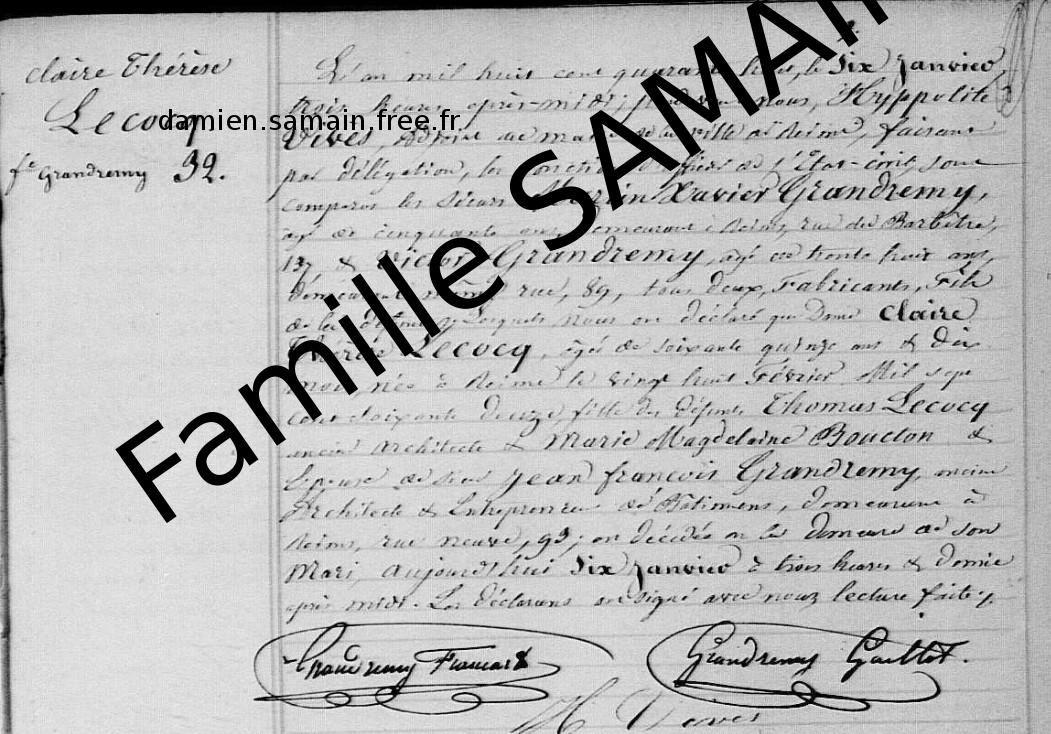 Claire Thérèse
Lecocq
fe Grandremy 32.
damien.samain.free.fr
Famille SAMAIN
L'an mil huit cent quarante huit, le Six Janvier,
heures après-midi; nous, Hyppolite
Vivès, de la ville de Reims, faisant
par délégation, les fonctions d'officier de l'État-civil, sont
comparus les Sieurs Xavier Grandremy,
âgé de cinquante ans, demeurant à Reims, rue du Barbâtre,
137, & Victor Grandremy, âgé de trente huit ans,
demeurant même rue, 89, tous deux, Fabricants, Fils
de la défunte; Lesquels Nous ont déclaré que Dame Claire
Thérèse Lecocq, âgée de soixante quinze ans & dix
mois, née à Reims le vingt huit Février Mil sept
cent soixante douze, fille des défunts Thomas Lecocq
ancien Architecte & Marie Magdelaine Boucton &
Epouse de Sieur Jean François Grandremy, ancien
Architecte & Entrepreneur de Bâtimens, demeurant à
Reims, rue neuve, 93; est décédée en la demeure de son
Mari, aujourd'hui Six Janvier à trois heures & demie
après midi. Les déclarans ont signé avec nous lecture faite.
Grandremy Grandremy Gaillot.
H Vivès